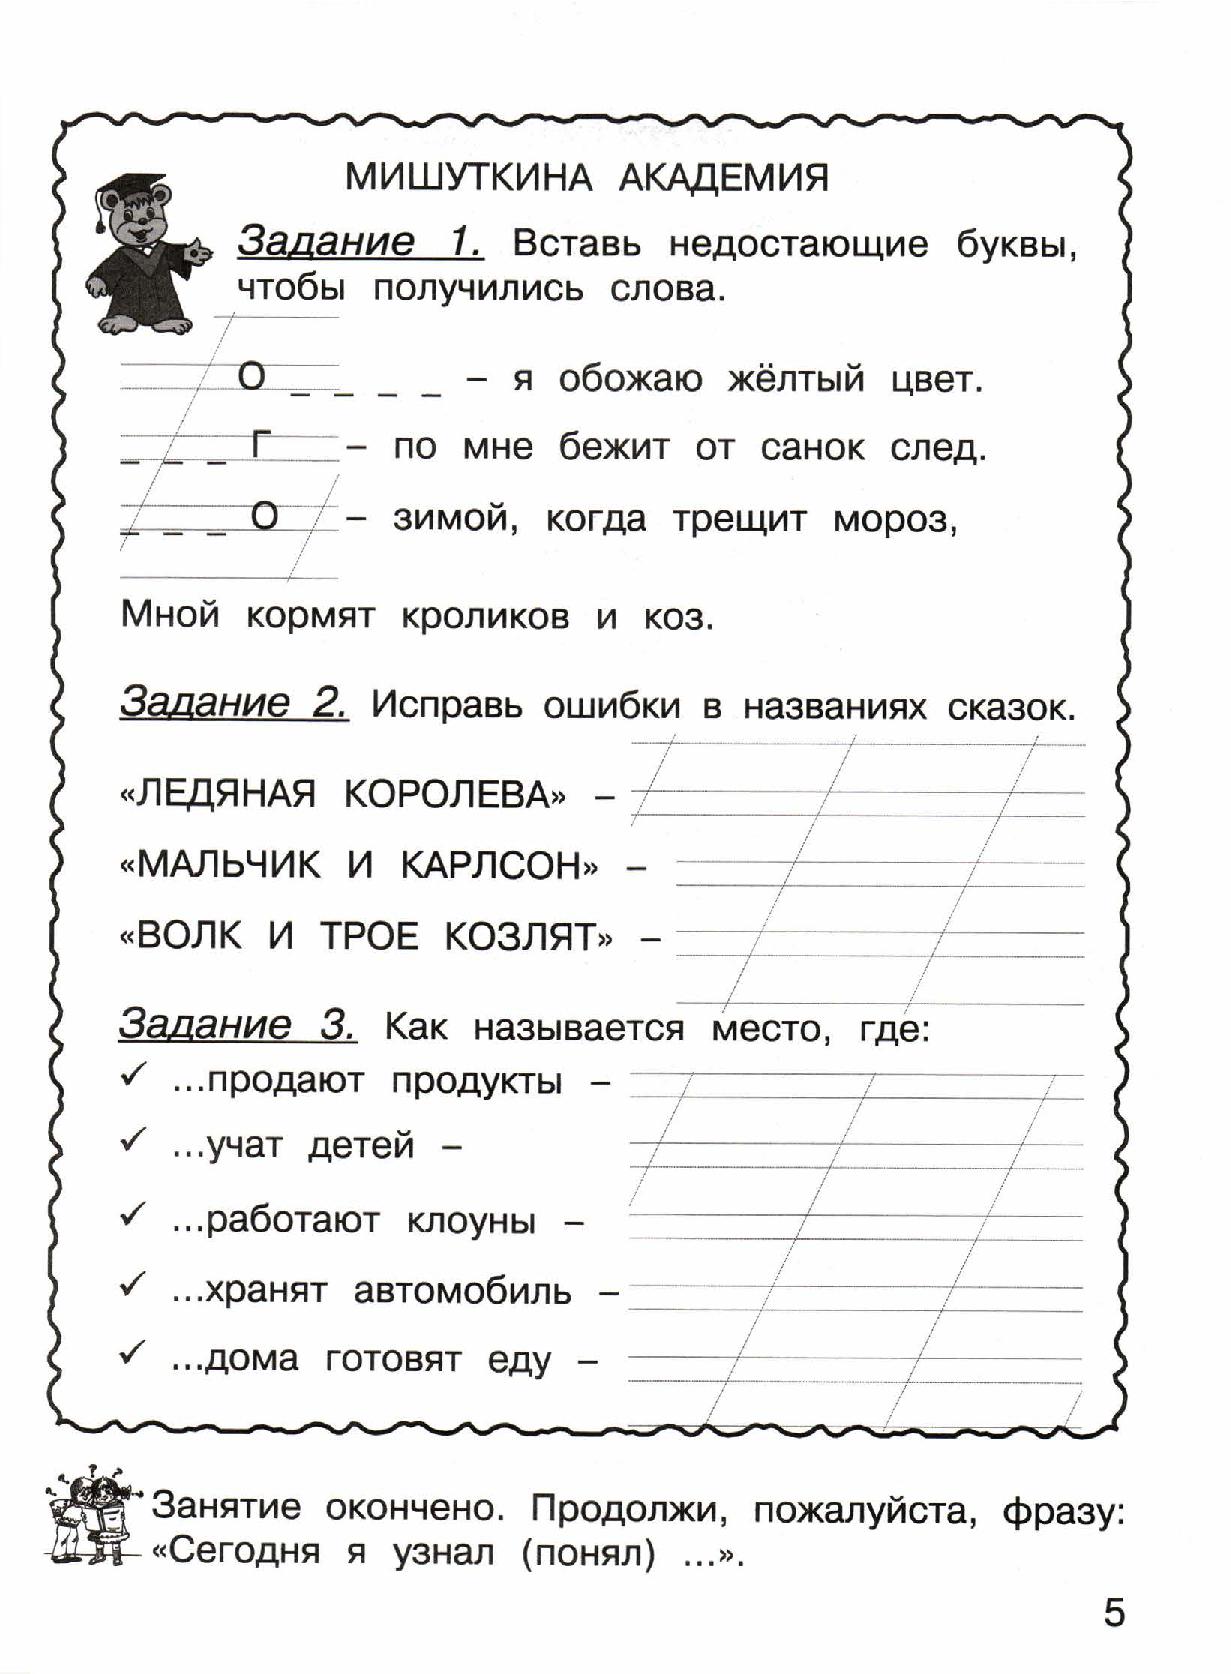 МИШУТКИНА АКАДЕМИЯ
Задание 1. Вставь недостающие буквы,
чтобы получились слова.
О _ _ _ _ – я обожаю жёлтый цвет.
_ _ _ Г – по мне бежит от санок след.
_ _ _ О – зимой, когда трещит мороз,
Мной кормят кроликов и коз.
Задание 2. Исправь ошибки в названиях сказок.
«ЛЕДЯНАЯ КОРОЛЕВА» –
«МАЛЬЧИК И КАРЛСОН» –
«ВОЛК И ТРОЕ КОЗЛЯТ» –
Задание 3. Как называется место, где:
✓ ...продают продукты –
✓ ...учат детей –
✓ ...работают клоуны –
✓ ...хранят автомобиль –
✓ ...дома готовят еду –
Занятие окончено. Продолжи, пожалуйста, фразу:
«Сегодня я узнал (понял) ...».
5